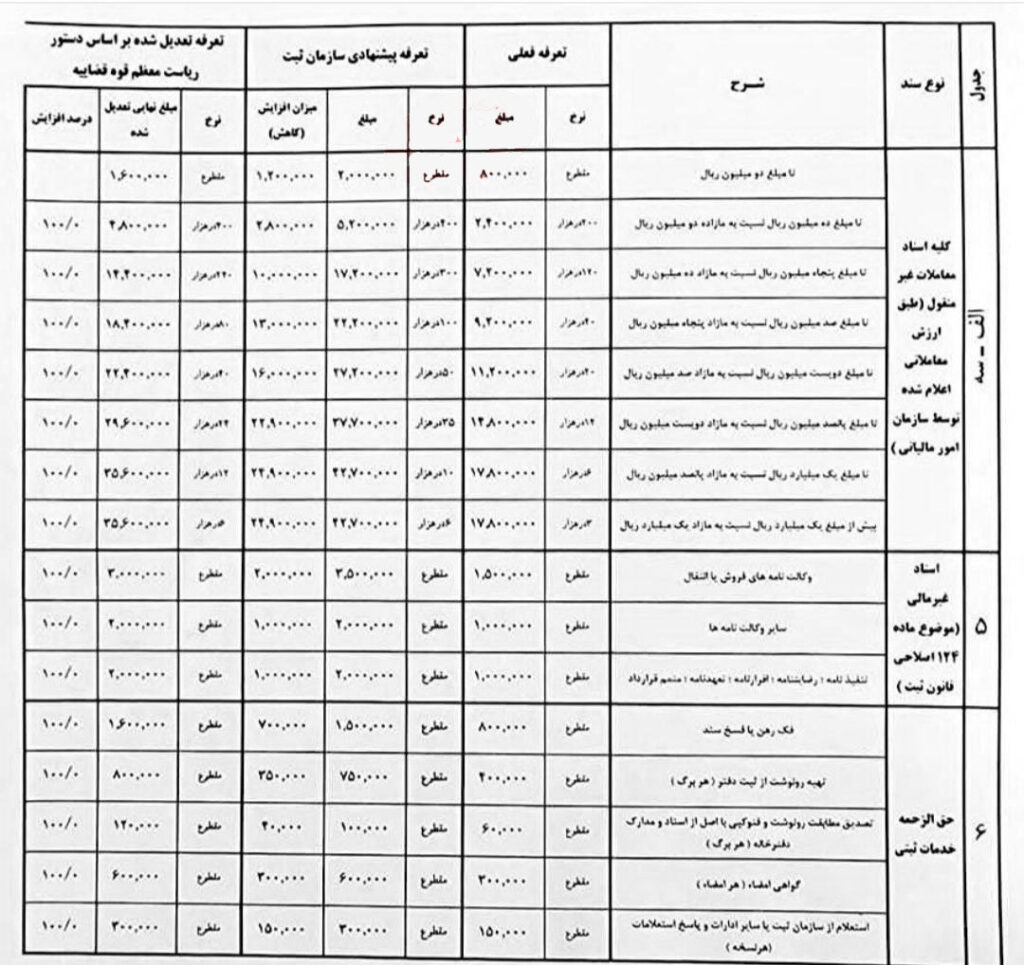 جدول
نوع سند
شرح
تعرفه فعلی
تعرفه پیشنهادی سازمان ثبت
تعرفه تعدیل شده بر اساس دستور
ریاست معظم قوه قضاییه
نرخ مبلغ نرخ مبلغ میزان افزایش (کاهش) نرخ مبلغ نهایی تعدیل شده درصد افزایش
الف - سه
کلیه اسناد
معاملات غیر
منقول (طبق
ارزش
معاملاتی
اعلام شده
توسط سازمان
امور مالیاتی)
تا مبلغ دو میلیون ریال مقطوع ۸۰۰,۰۰۰ مقطوع ۲,۰۰۰,۰۰۰ ۱,۲۰۰,۰۰۰ مقطوع ۱,۶۰۰,۰۰۰
تا مبلغ ده میلیون ریال نسبت به مازاده دو میلیون ریال ۲۰۰درهزار ۲,۴۰۰,۰۰۰ ۴۰۰درهزار ۵,۲۰۰,۰۰۰ ۲,۸۰۰,۰۰۰ ۴۰۰درهزار ۴,۸۰۰,۰۰۰ ۱۰۰/۰
تا مبلغ پنجاه میلیون ریال نسبت به مازاد ده میلیون ریال ۱۲۰درهزار ۷,۲۰۰,۰۰۰ ۳۰۰درهزار ۱۷,۲۰۰,۰۰۰ ۱۰,۰۰۰,۰۰۰ ۲۴۰درهزار ۱۴,۴۰۰,۰۰۰ ۱۰۰/۰
تا مبلغ صد میلیون ریال نسبت به مازاد پنجاه میلیون ریال ۴۰درهزار ۹,۲۰۰,۰۰۰ ۱۰۰درهزار ۲۲,۲۰۰,۰۰۰ ۱۳,۰۰۰,۰۰۰ ۸۰درهزار ۱۸,۴۰۰,۰۰۰ ۱۰۰/۰
تا مبلغ دویست میلیون ریال نسبت به مازاد صد میلیون ریال ۲۰درهزار ۱۱,۲۰۰,۰۰۰ ۵۰درهزار ۲۷,۲۰۰,۰۰۰ ۱۶,۰۰۰,۰۰۰ ۴۰درهزار ۲۲,۴۰۰,۰۰۰ ۱۰۰/۰
تا مبلغ پانصد میلیون ریال نسبت به مازاد دویست میلیون ریال ۱۲درهزار ۱۴,۸۰۰,۰۰۰ ۳۵درهزار ۳۷,۷۰۰,۰۰۰ ۲۲,۹۰۰,۰۰۰ ۲۴درهزار ۲۹,۶۰۰,۰۰۰ ۱۰۰/۰
تا مبلغ یک میلیارد ریال نسبت به مازاد پانصد میلیون ریال ۶درهزار ۱۷,۸۰۰,۰۰۰ ۱۰درهزار ۴۲,۷۰۰,۰۰۰ ۲۴,۹۰۰,۰۰۰ ۱۲درهزار ۳۵,۶۰۰,۰۰۰ ۱۰۰/۰
بیش از مبلغ یک میلیارد ریال نسبت به مازاد یک میلیارد ریال ۳درهزار ۱۷,۸۰۰,۰۰۰ ۶درهزار ۴۲,۷۰۰,۰۰۰ ۲۴,۹۰۰,۰۰۰ درهزار ۳۵,۶۰۰,۰۰۰ ۱۰۰/۰
۵
اسناد
غیرمالی
(موضوع ماده
۱۲۴ اصلاحی
قانون ثبت)
وکالت نامه های فروش یا انتقال مقطوع ۱,۵۰۰,۰۰۰ مقطوع ۳,۵۰۰,۰۰۰ ۲,۰۰۰,۰۰۰ مقطوع ۳,۰۰۰,۰۰۰ ۱۰۰/۰
سایر وکالت نامه ها مقطوع ۱,۰۰۰,۰۰۰ مقطوع ۲,۰۰۰,۰۰۰ ۱,۰۰۰,۰۰۰ مقطوع ۲,۰۰۰,۰۰۰ ۱۰۰/۰
تنفیذ نامه ؛ رضایتنامه ؛ اقرارنامه ؛ تعهدنامه ؛ متمم قرارداد مقطوع ۱,۰۰۰,۰۰۰ مقطوع ۲,۰۰۰,۰۰۰ ۱,۰۰۰,۰۰۰ مقطوع ۲,۰۰۰,۰۰۰ ۱۰۰/۰
۶
حق الزحمه
خدمات ثبتی
فک رهن یا فسخ سند مقطوع ۸۰۰,۰۰۰ مقطوع ۱,۵۰۰,۰۰۰ ۷۰۰,۰۰۰ مقطوع ۱,۶۰۰,۰۰۰ ۱۰۰/۰
تهیه رونوشت از ثبت دفتر (هر برگ) مقطوع ۴۰۰,۰۰۰ مقطوع ۷۵۰,۰۰۰ ۳۵۰,۰۰۰ مقطوع ۸۰۰,۰۰۰ ۱۰۰/۰
تصدیق مطابقت رونوشت و فتوکپی با اصل از اسناد و مدارک
دفترخانه (هر برگ) مقطوع ۶۰,۰۰۰ مقطوع ۱۰۰,۰۰۰ ۴۰,۰۰۰ مقطوع ۱۲۰,۰۰۰ ۱۰۰/۰
گواهی امضاء (هر امضاء) مقطوع ۳۰۰,۰۰۰ مقطوع ۶۰۰,۰۰۰ ۳۰۰,۰۰۰ مقطوع ۶۰۰,۰۰۰ ۱۰۰/۰
استعلام از سازمان ثبت یا سایر ادارات و پاسخ استعلامات
(هرنسخه) مقطوع ۱۵۰,۰۰۰ مقطوع ۳۰۰,۰۰۰ ۱۵۰,۰۰۰ مقطوع ۳۰۰,۰۰۰ ۱۰۰/۰